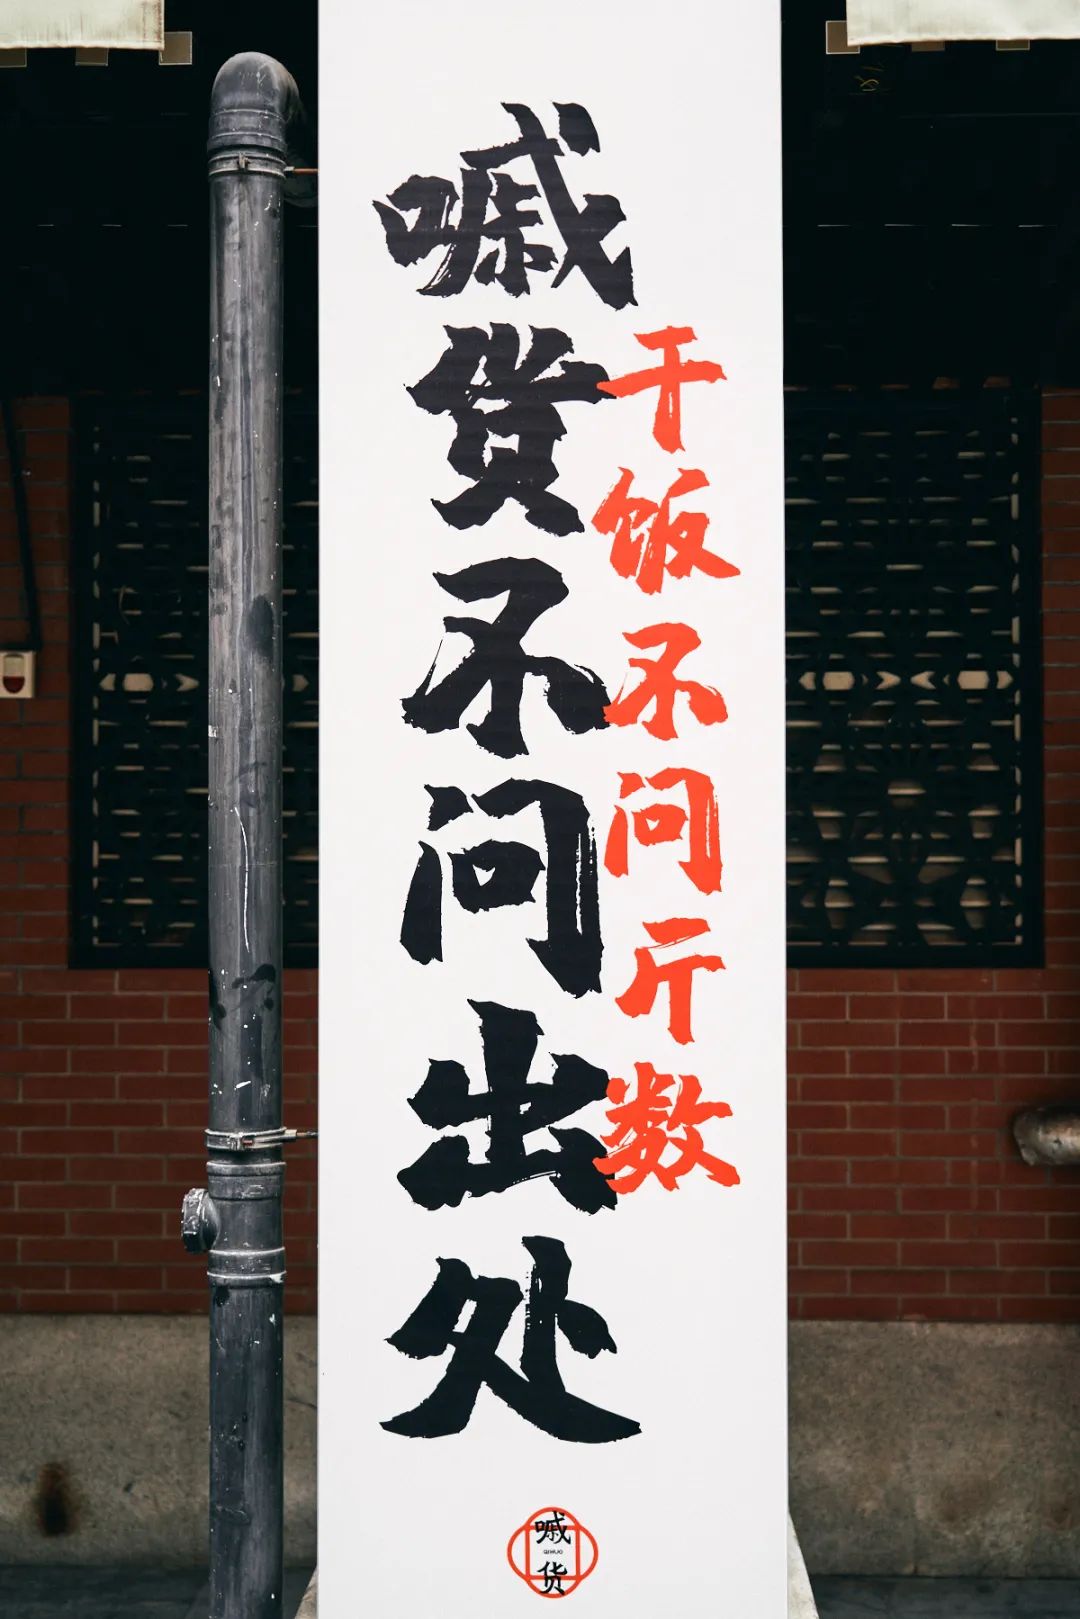 干饭不问斤数
嘁货不问出处
嘁
QIHUO
货